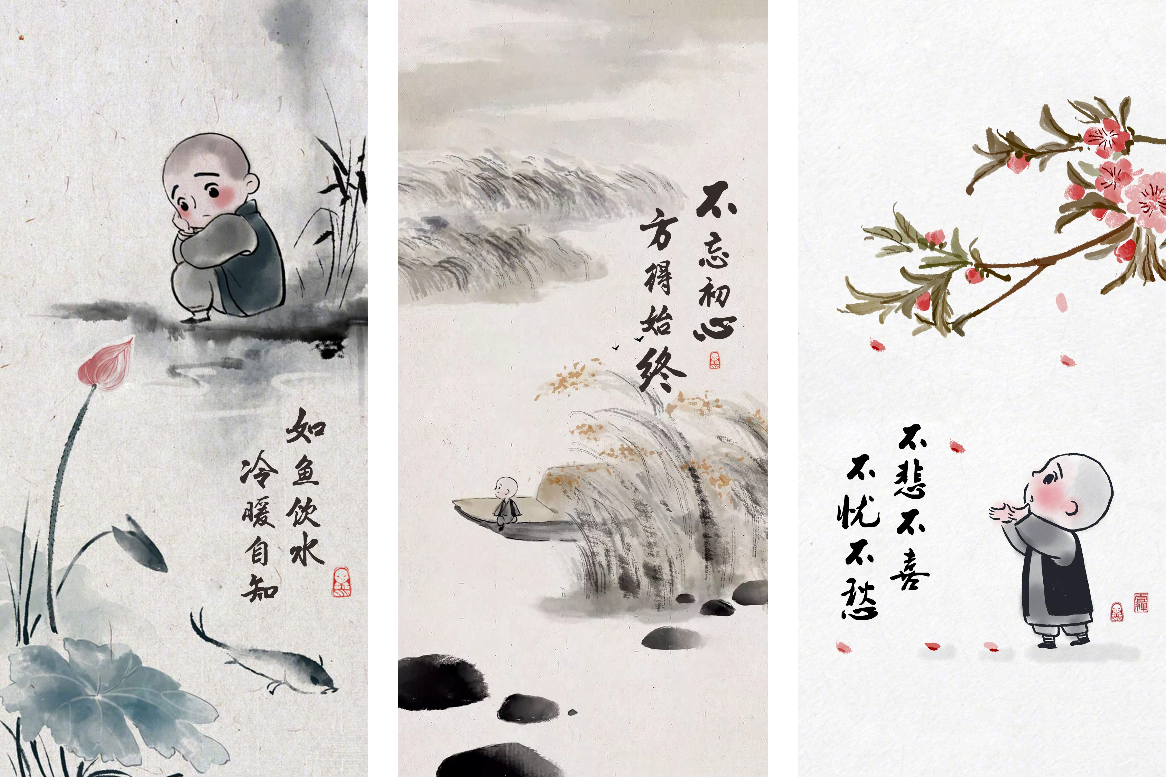 如鱼饮水
冷暖自知
不忘初心
方得始终
不悲不喜
不忧不愁